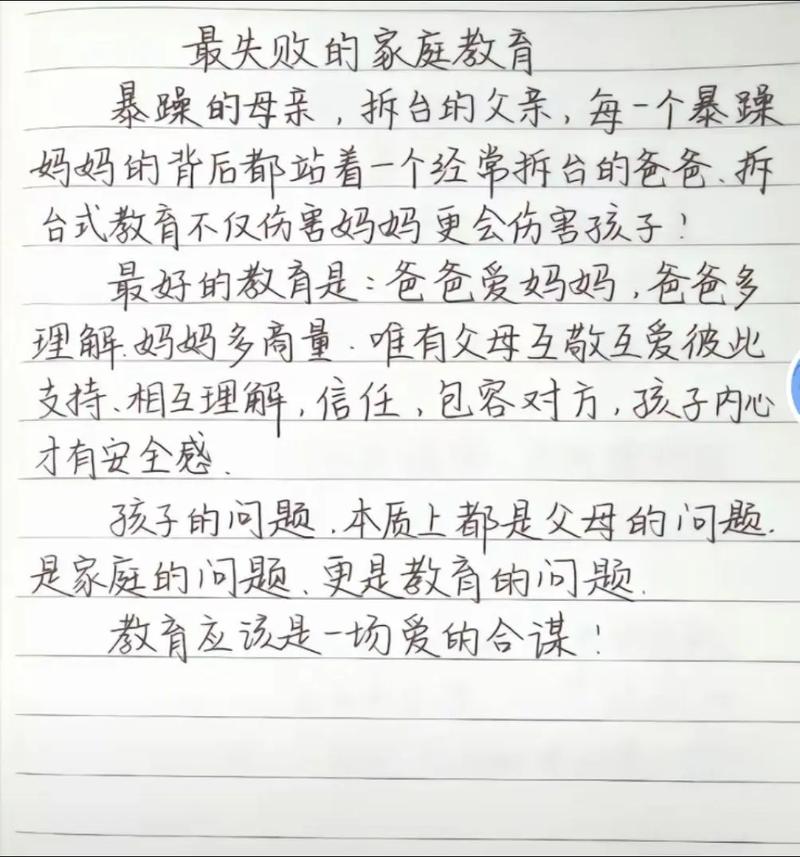 最失败的家庭教育
暴躁的母亲,拆台的父亲,每一个暴躁
妈妈的背后都站着一个经常拆台的爸爸、拆
台式教育不仅伤害妈妈更会伤害孩子!
最好的教育是:爸爸爱妈妈,爸爸多
理解.妈妈多商量.唯有父母互敬互爱彼此
支持、相互理解,信任,包容对方,孩子内心
才有安全感.
孩子的问题.本质上都是父母的问题.
是家庭的问题、更是教育的问题.
教育应该是一场爱的合谋!